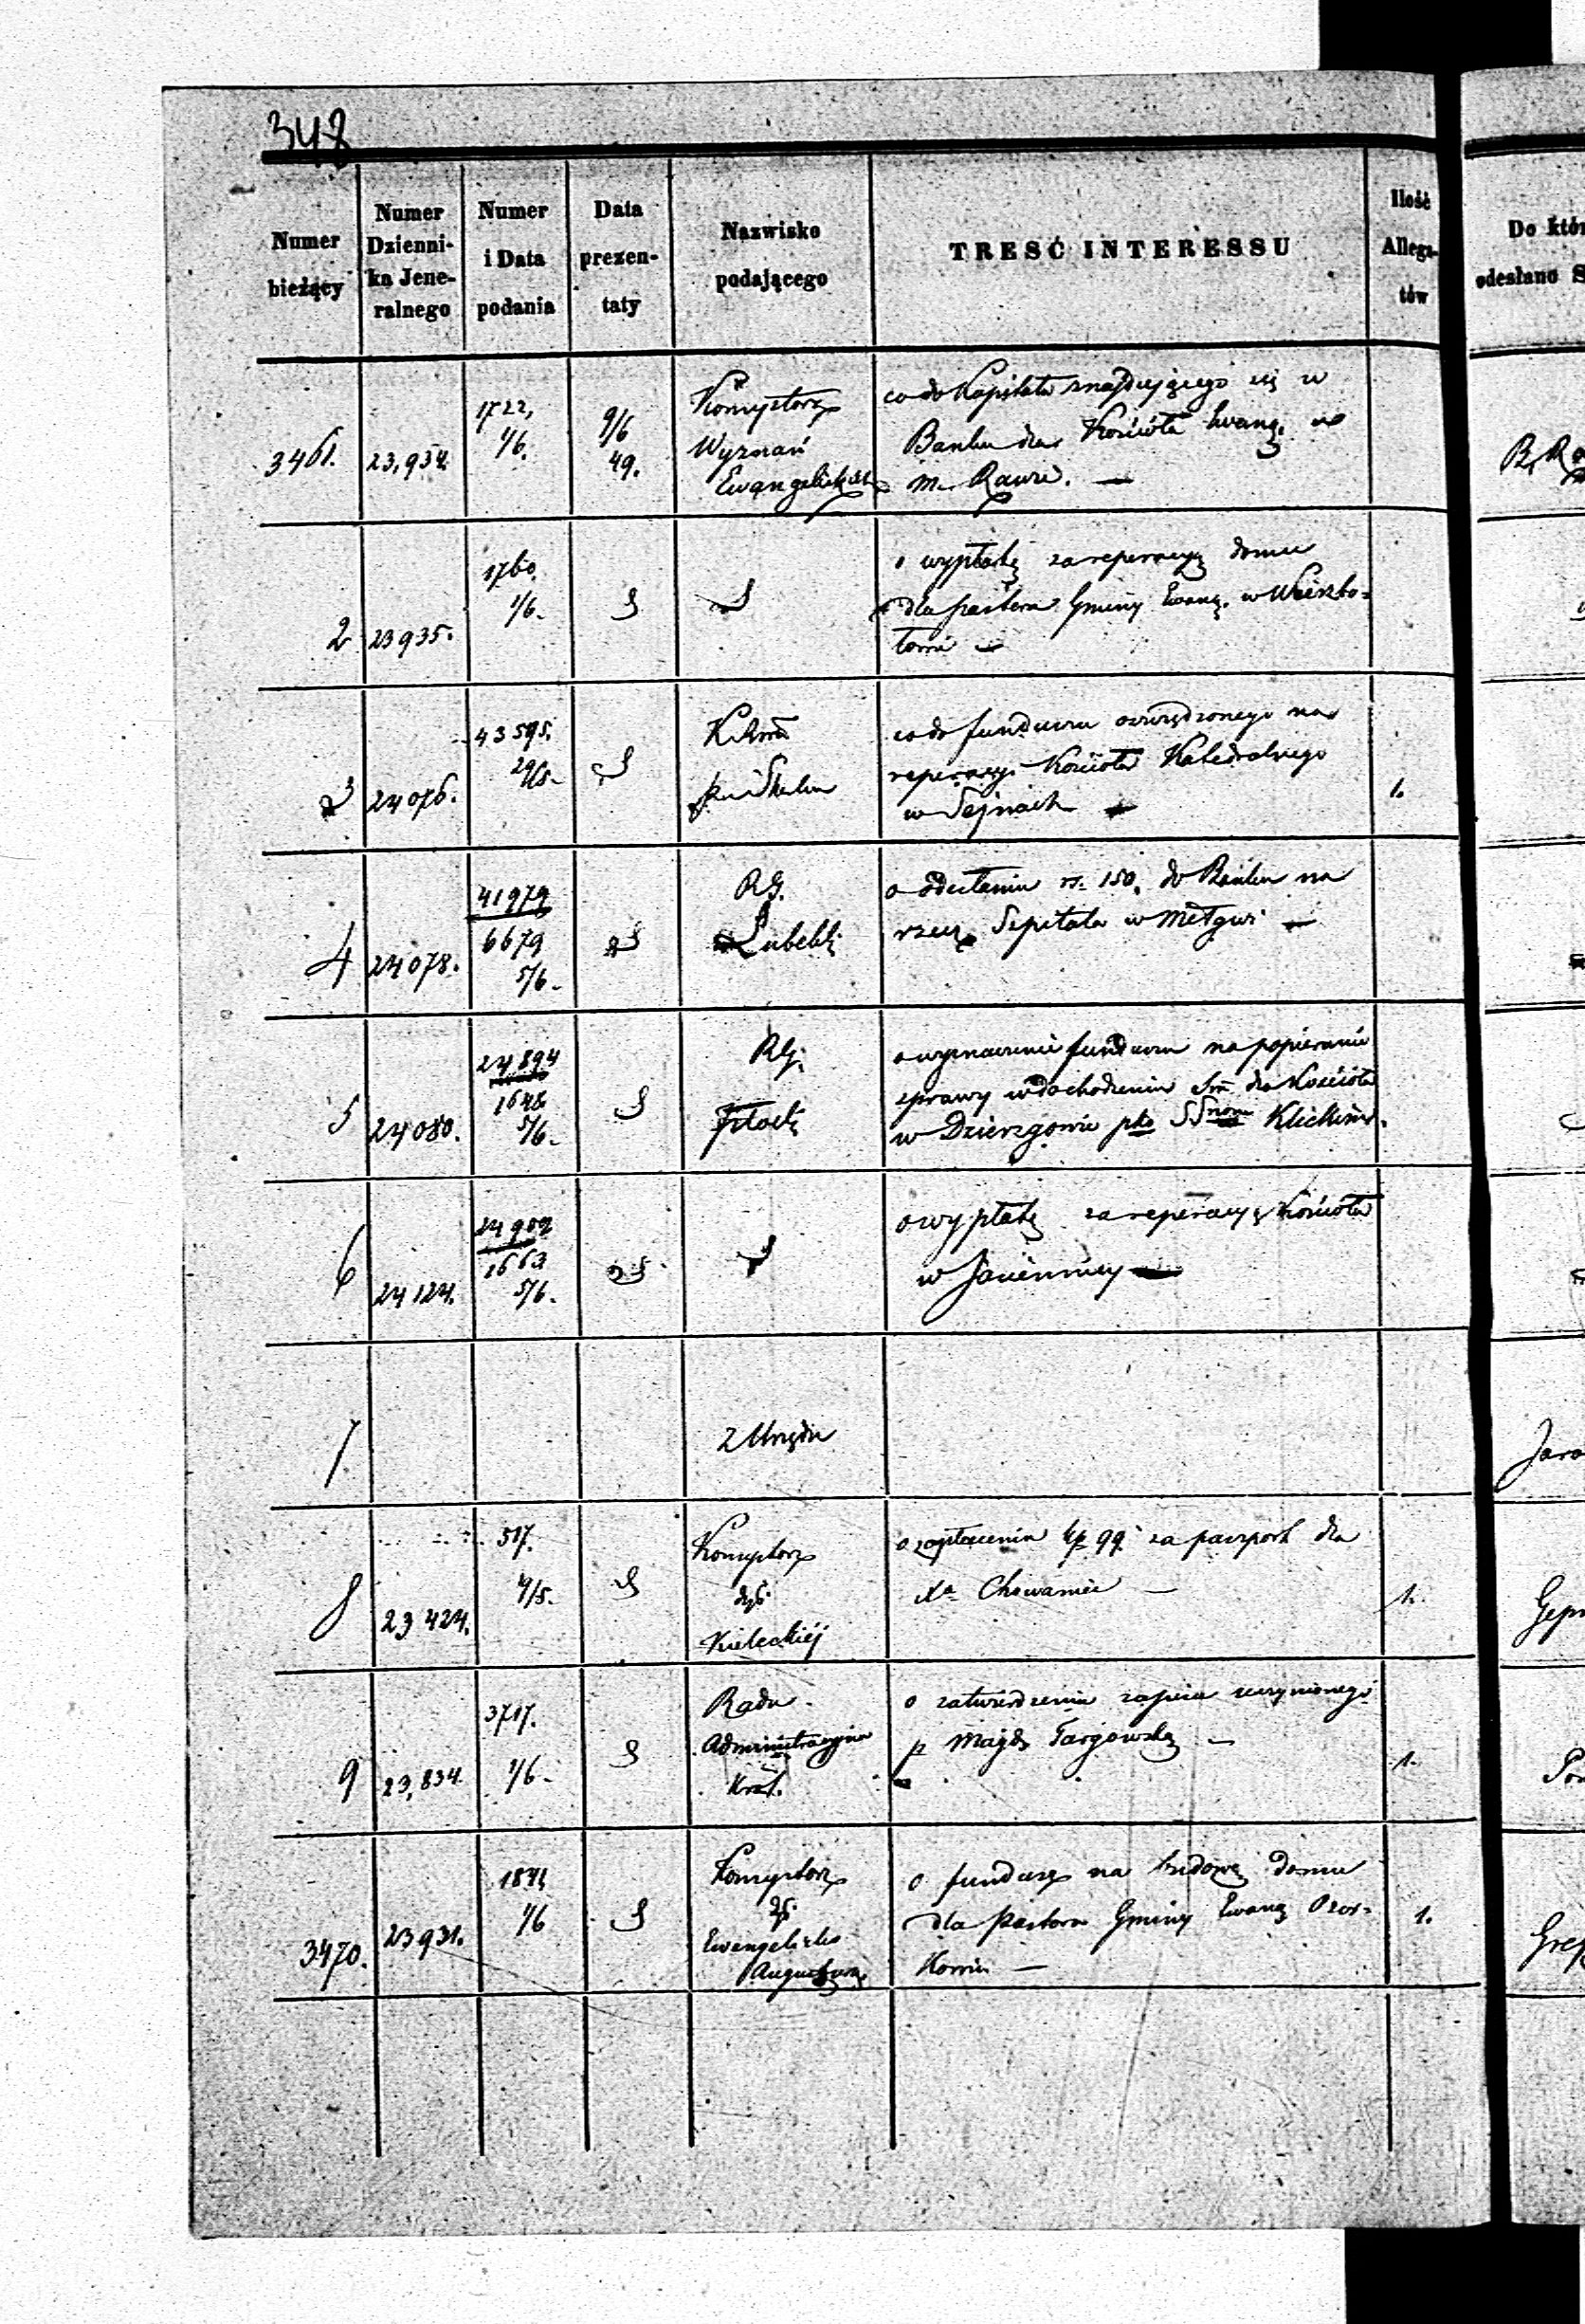 348
Numer bieżący
Numer Dzienni-ka Jene-ralnego
Numer i Data podania
Data prezen-taty
Nazwisko podającego
TRESĆ INTERESSU
Ilość Allega-tów
Do któr
odesłano S
3461. 23,934. 1722, 1/6. 9/6 49.
Konsystorz
Wyznań
Ewangelickich
co do Kapitału znajdującego się w
Banku dla Kościoła Ewang. w
m. Rawie. —
2 23935. 1760. 1/6.
o wypłatę za reperacyą domu
dla pastora Gminy Ewang. w Wierzbo-
łowie —
3 24076. 43595. 29/5.
co do funduszu na
reperacyi Kościoła Katedralnego
w Sejnach
1.
4 24078. 41979 6679 5/6.
RG.
Lubelski
o odesłaniu rs. 150. do Banku na
rzecz Szpitala w Mełgwi —
5 24080. 24894 1648 5/6.
RG.
Płocki
o wyznaczenie funduszu na popieranie
sprawy w dochodzeniu dla Kościoła
w Dzierzgowie pko SSrom Klickim.
6 24124. 24909 1663 5/6.
o wypłatę za reperacyę Kościoła
w
7
Z Urzędu
8 23424. 517. 4/5.
Konsystorz
dyec.
Kieleckiéj
o zapłacenie złp 99 za paszport dla
Xa Chowaniec —
1.
Gepn
9 23,834. 3717. 1/6.
Rada
Administracyjna
Król.
o zatwierdzenie zapisu uczynionego
p Magdę Targowską —
1.
3470. 23931. 1/6
Konsystorz
Ewangelicko
Augsburg.
o fundusz na budowę domu
dla Pastora Gminy Ewang Ozor-
kowie —
1.